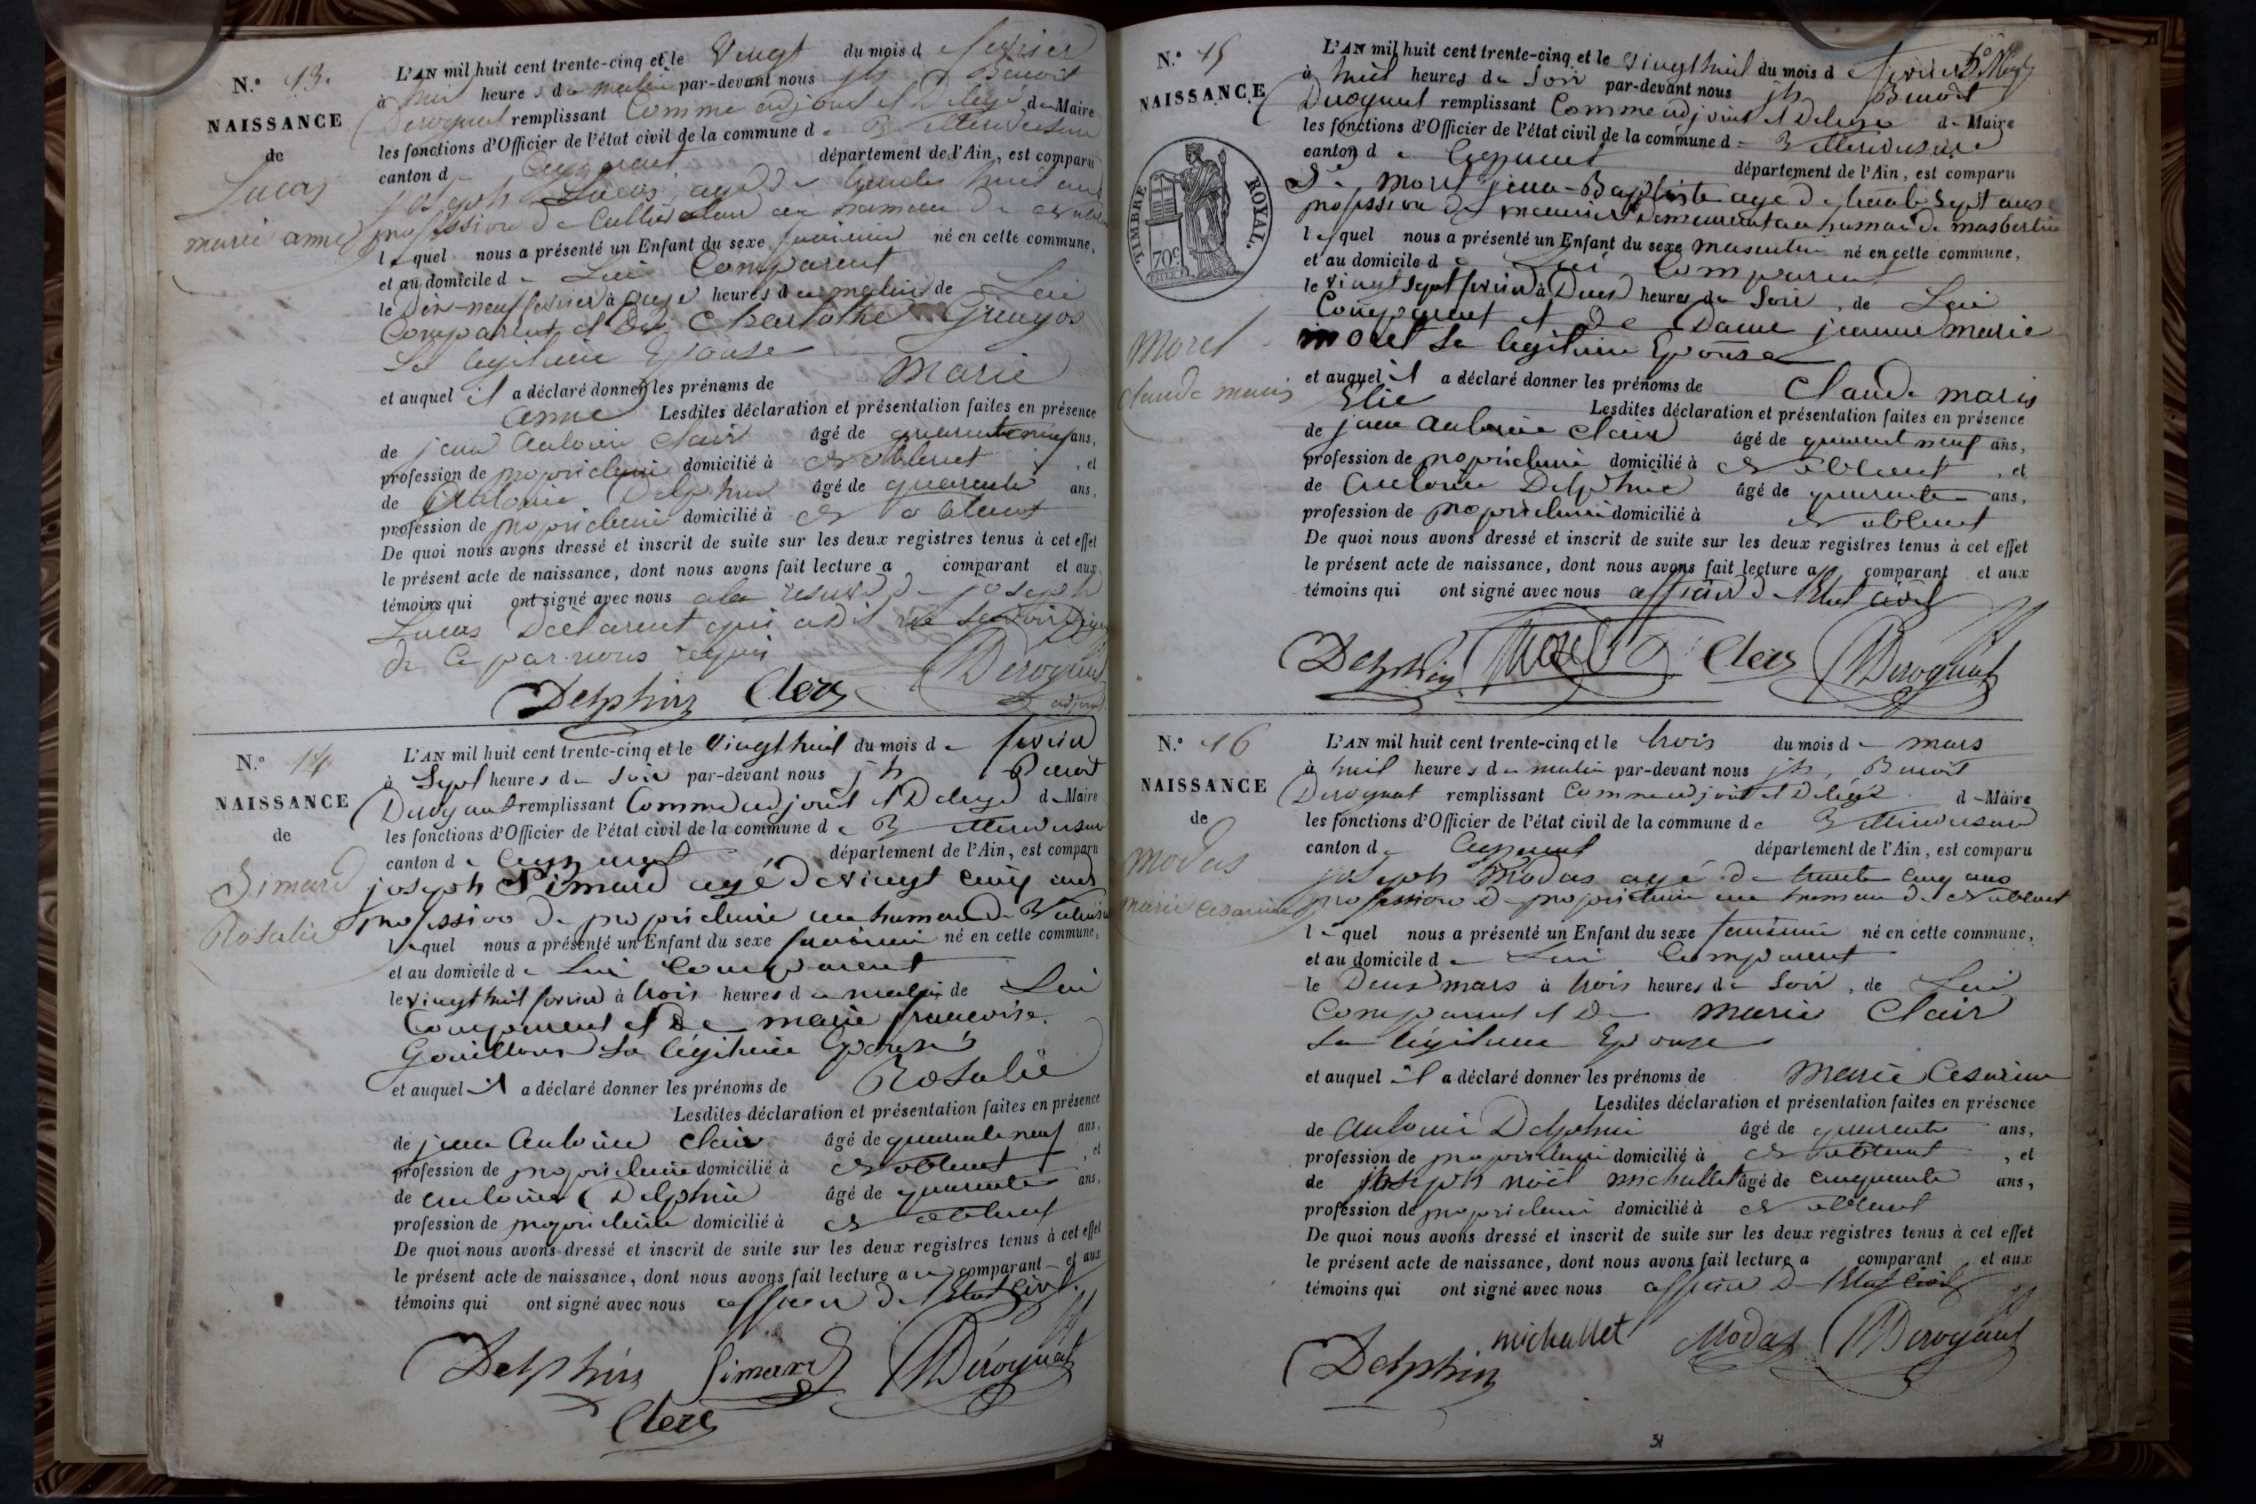 N.º 13.
NAISSANCE
de
Lucas
marie anne
L'AN mil huit cent trente-cinq et le vingt du mois d fevrier
à huit heures du matin par-devant nous jh Benoit
Derognat remplissant Comme adjoint et Delegé de Maire
les fonctions d'Officier de l'état civil de la commune de
canton d Ceyzeriat département de l'Ain, est comparu
joseph Lucas, agé de trente huit ans
profession de Cultivateur au hameau de
lequel nous a présenté un Enfant du sexe feminin né en cette commune,
et au domicile de Lui Comparant
le Dix-neuf fevrier à onze heures du matin de Lui
Comparant et de Charlotte Grungos
Sa legitime Epouse
et auquel il a déclaré donner les prénoms de Marie
anne Lesdites déclaration et présentation faites en présence
de jean Antoine Clair âgé de quarante neuf ans,
profession de propriétaire domicilié à , et
de Antoine Delphin âgé de quarante ans,
profession de propriétaire domicilié à
De quoi nous avons dressé et inscrit de suite sur les deux registres tenus à cet effet
le présent acte de naissance, dont nous avons fait lecture a comparant et aux
témoins qui ont signé avec nous a la reserve de joseph
Lucas Déclarant qui a dit ne savoir signer
de ce par nous requis
Delphin Clerc Derognat
adjoint
N.º 14
NAISSANCE
de
Simard
Rosalie
L'AN mil huit cent trente-cinq et le vingt huit du mois de fevrier
à Sept heures du soir par-devant nous jh Benoit
Derognat remplissant Comme adjoint et Delegé de Maire
les fonctions d'Officier de l'état civil de la commune de
canton de Ceyzeriat département de l'Ain, est comparu
joseph Simard agé de vingt cinq ans
profession de propriétaire au hameau de
lequel nous a présenté un Enfant du sexe feminin né en cette commune,
et au domicile de Lui Comparant
le vingt huit fevrier à trois heures du matin de Lui
Comparant et De marie françoise
Gouilloux Sa légitime Epouse
et auquel il a déclaré donner les prénoms de Rosalie
Lesdites déclaration et présentation faites en présence
de jean Antoine Clair âgé de quarante neuf ans,
profession de propriétaire domicilié à , et
de antoine Delphin âgé de quarante ans,
profession de propriétaire domicilié à
De quoi nous avons dressé et inscrit de suite sur les deux registres tenus à cet effet
le présent acte de naissance, dont nous avons fait lecture au comparant et aux
témoins qui ont signé avec nous officier de l'Etat Civil.
Delphin Simard Derognat
Clerc
N.º 15
NAISSANCE
TIMBRE ROYAL.
70c
Morel
Claude marie
L'AN mil huit cent trente-cinq et le vingt huit du mois d fevrier
à huit heures du Soir par-devant nous jh Benoit
Derognat remplissant Comme adjoint et Delegé de Maire
les fonctions d'Officier de l'état civil de la commune de
canton de Ceyzeriat département de l'Ain, est comparu
Sr Morel jean-Baptiste agé de trente Sept ans
profession de meunier demeurant au hameau de masbertin
lequel nous a présenté un Enfant du sexe masculin né en cette commune,
et au domicile de Lui Comparant
le vingt Sept fevrier à Deux heures du Soir, de Lui
Comparant et De Dame jeanne marie
morel Sa legitime Epouse
et auquel il a déclaré donner les prénoms de Claude marie
Elie Lesdites déclaration et présentation faites en présence
de jean antoine Clair âgé de quarante neuf ans,
profession de propriétaire domicilié à , et
de antoine Delphin âgé de quarante ans,
profession de propriétaire domicilié à
De quoi nous avons dressé et inscrit de suite sur les deux registres tenus à cet effet
le présent acte de naissance, dont nous avons fait lecture a comparant et aux
témoins qui ont signé avec nous officier de l'Etat civil
Delphin Morel Clerc Derognat
N.º 16
NAISSANCE
de
Modas
marie Cesarine
L'AN mil huit cent trente-cinq et le trois du mois de mars
à huit heures du matin par-devant nous jh, Benoit
Derognat remplissant Comme adjoint et Delegé de Maire
les fonctions d'Officier de l'état civil de la commune de
canton de Ceyzeriat département de l'Ain, est comparu
joseph Modas agé de trente cinq ans
profession de propriétaire au hameau de
lequel nous a présenté un Enfant du sexe feminin né en cette commune,
et au domicile de Lui Comparant
le Deux mars à trois heures du Soir, de Lui
Comparant et De marie Clair
Sa légitime Epouse
et auquel il a déclaré donner les prénoms de Marie Cesarine
Lesdites déclaration et présentation faites en présence
de antoine Delphin âgé de quarante ans,
profession de propriétaire domicilié à , et
de joseph noël michallet âgé de cinquante ans,
profession de propriétaire domicilié à
De quoi nous avons dressé et inscrit de suite sur les deux registres tenus à cet effet
le présent acte de naissance, dont nous avons fait lecture a comparant et aux
témoins qui ont signé avec nous officier de l'Etat Civil
Delphin michallet Modas Derognat
31